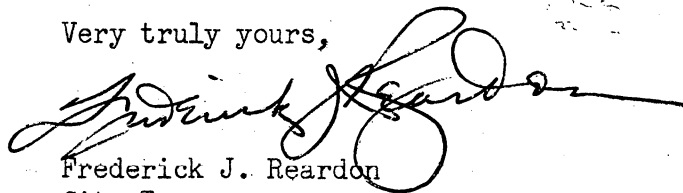 Very truly yours,
Frederick J. Reardon
Frederick J. Reardon